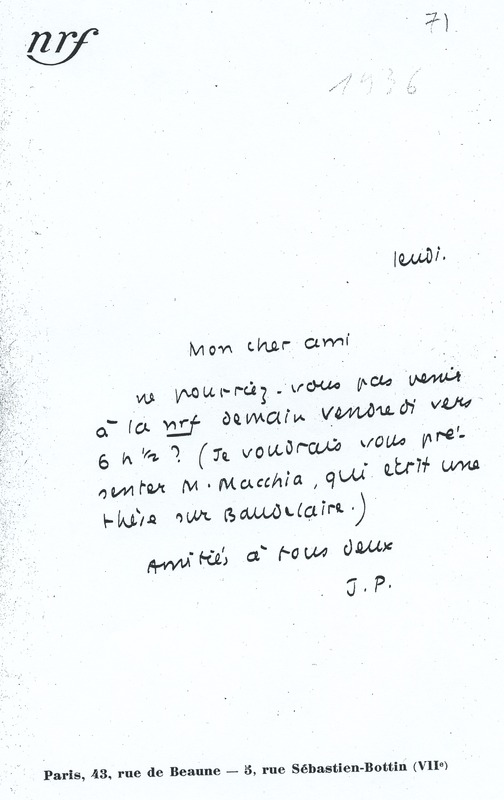 nrf
71
1936
jeudi.
Mon cher ami
ne pourriez-vous pas venir
à la nrf demain vendredi vers
6 h ½ ? (Je voudrais vous pré-
senter M. Macchia, qui écrit une
thèse sur Baudelaire.)
Amitiés à tous deux
J.P.
Paris, 43, rue de Beaune — 5, rue Sébastien-Bottin (VIIᵉ)